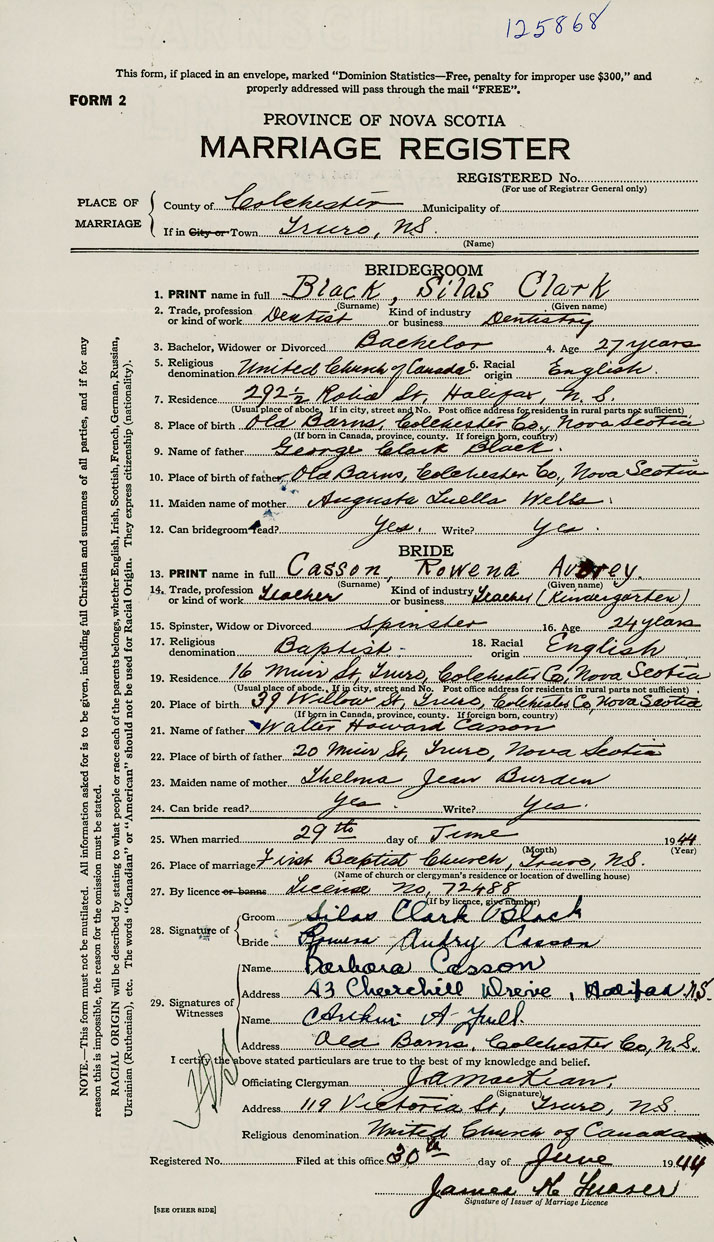 125868
This form, if placed in an envelope, marked "Dominion Statistics—Free, penalty for improper use $300," and
properly addressed will pass through the mail "FREE".
FORM 2
PROVINCE OF NOVA SCOTIA
MARRIAGE REGISTER
REGISTERED No.
(For use of Registrar General only)
PLACE OF MARRIAGE
County of Colchester Municipality of
If in City or Town Truro, N.S.
(Name)
BRIDEGROOM
1. PRINT name in full Black, Silas Clark
(Surname) (Given name)
2. Trade, profession or kind of work Dentist Kind of industry or business Dentistry
3. Bachelor, Widower or Divorced Bachelor 4. Age 27 years
5. Religious denomination United Church of Canada 6. Racial origin English.
7. Residence 292½ St, Halifax, N. S.
(Usual place of abode. If in city, street and No. Post office address for residents in rural parts not sufficient)
8. Place of birth Old Barns, Colchester Co., Nova Scotia
(If born in Canada, province, county. If foreign born, country)
9. Name of father George Clark Black.
10. Place of birth of father Old Barns, Colchester Co., Nova Scotia
11. Maiden name of mother Augusta Luella Wells.
12. Can bridegroom read? Yes. Write? Yes.
BRIDE
13. PRINT name in full Casson, Rowena Aubrey.
(Surname) (Given name)
14. Trade, profession or kind of work Teacher Kind of industry or business Teacher (Kindergarten)
15. Spinster, Widow or Divorced Spinster 16. Age 24 years
17. Religious denomination Baptist 18. Racial origin English
19. Residence 16 Muir St, Truro, Colchester Co, Nova Scotia
(Usual place of abode. If in city, street and No. Post office address for residents in rural parts not sufficient)
20. Place of birth 39 Willow St, Truro, Colchester Co, Nova Scotia
(If born in Canada, province, county. If foreign born, country)
21. Name of father Walter Howard Casson
22. Place of birth of father 20 Muir St, Truro, Nova Scotia
23. Maiden name of mother Thelma Jean Burden
24. Can bride read? Yes. Write? Yes.
25. When married 29th day of June 1944
(Month) (Year)
26. Place of marriage First Baptist Church, Truro, N.S.
(Name of church or clergyman's residence or location of dwelling house)
27. By licence or banns License No, 72488
(If by licence, give number)
28. Signature of
Groom Silas Clark Black
Bride Rowena Aubry Casson
29. Signatures of Witnesses
Name Barbara Casson
Address 43 Churchill Drive, Halifax N.S.
Name Arthur A
Address Old Barns, Colchester Co, N.S.
I certify the above stated particulars are true to the best of my knowledge and belief.
Officiating Clergyman J.A. MacKean.
(Signature)
Address 119 Victoria St, Truro, N.S.
Religious denomination United Church of Canada
Registered No. Filed at this office 30th day of June 1944
James H Fraser
Signature of Issuer of Marriage Licence
[SEE OTHER SIDE]
NOTE.—This form must not be mutilated. All information asked for is to be given, including full Christian and surnames of all parties, and if for any
reason this is impossible, the reason for the omission must be stated.
RACIAL ORIGIN will be described by stating to what people or race each of the parents belongs, whether English, Irish, Scottish, French, German, Russian,
Ukrainian (Ruthenian), etc. The words "Canadian" or "American" should not be used for Racial Origin. They express citizenship (nationality).